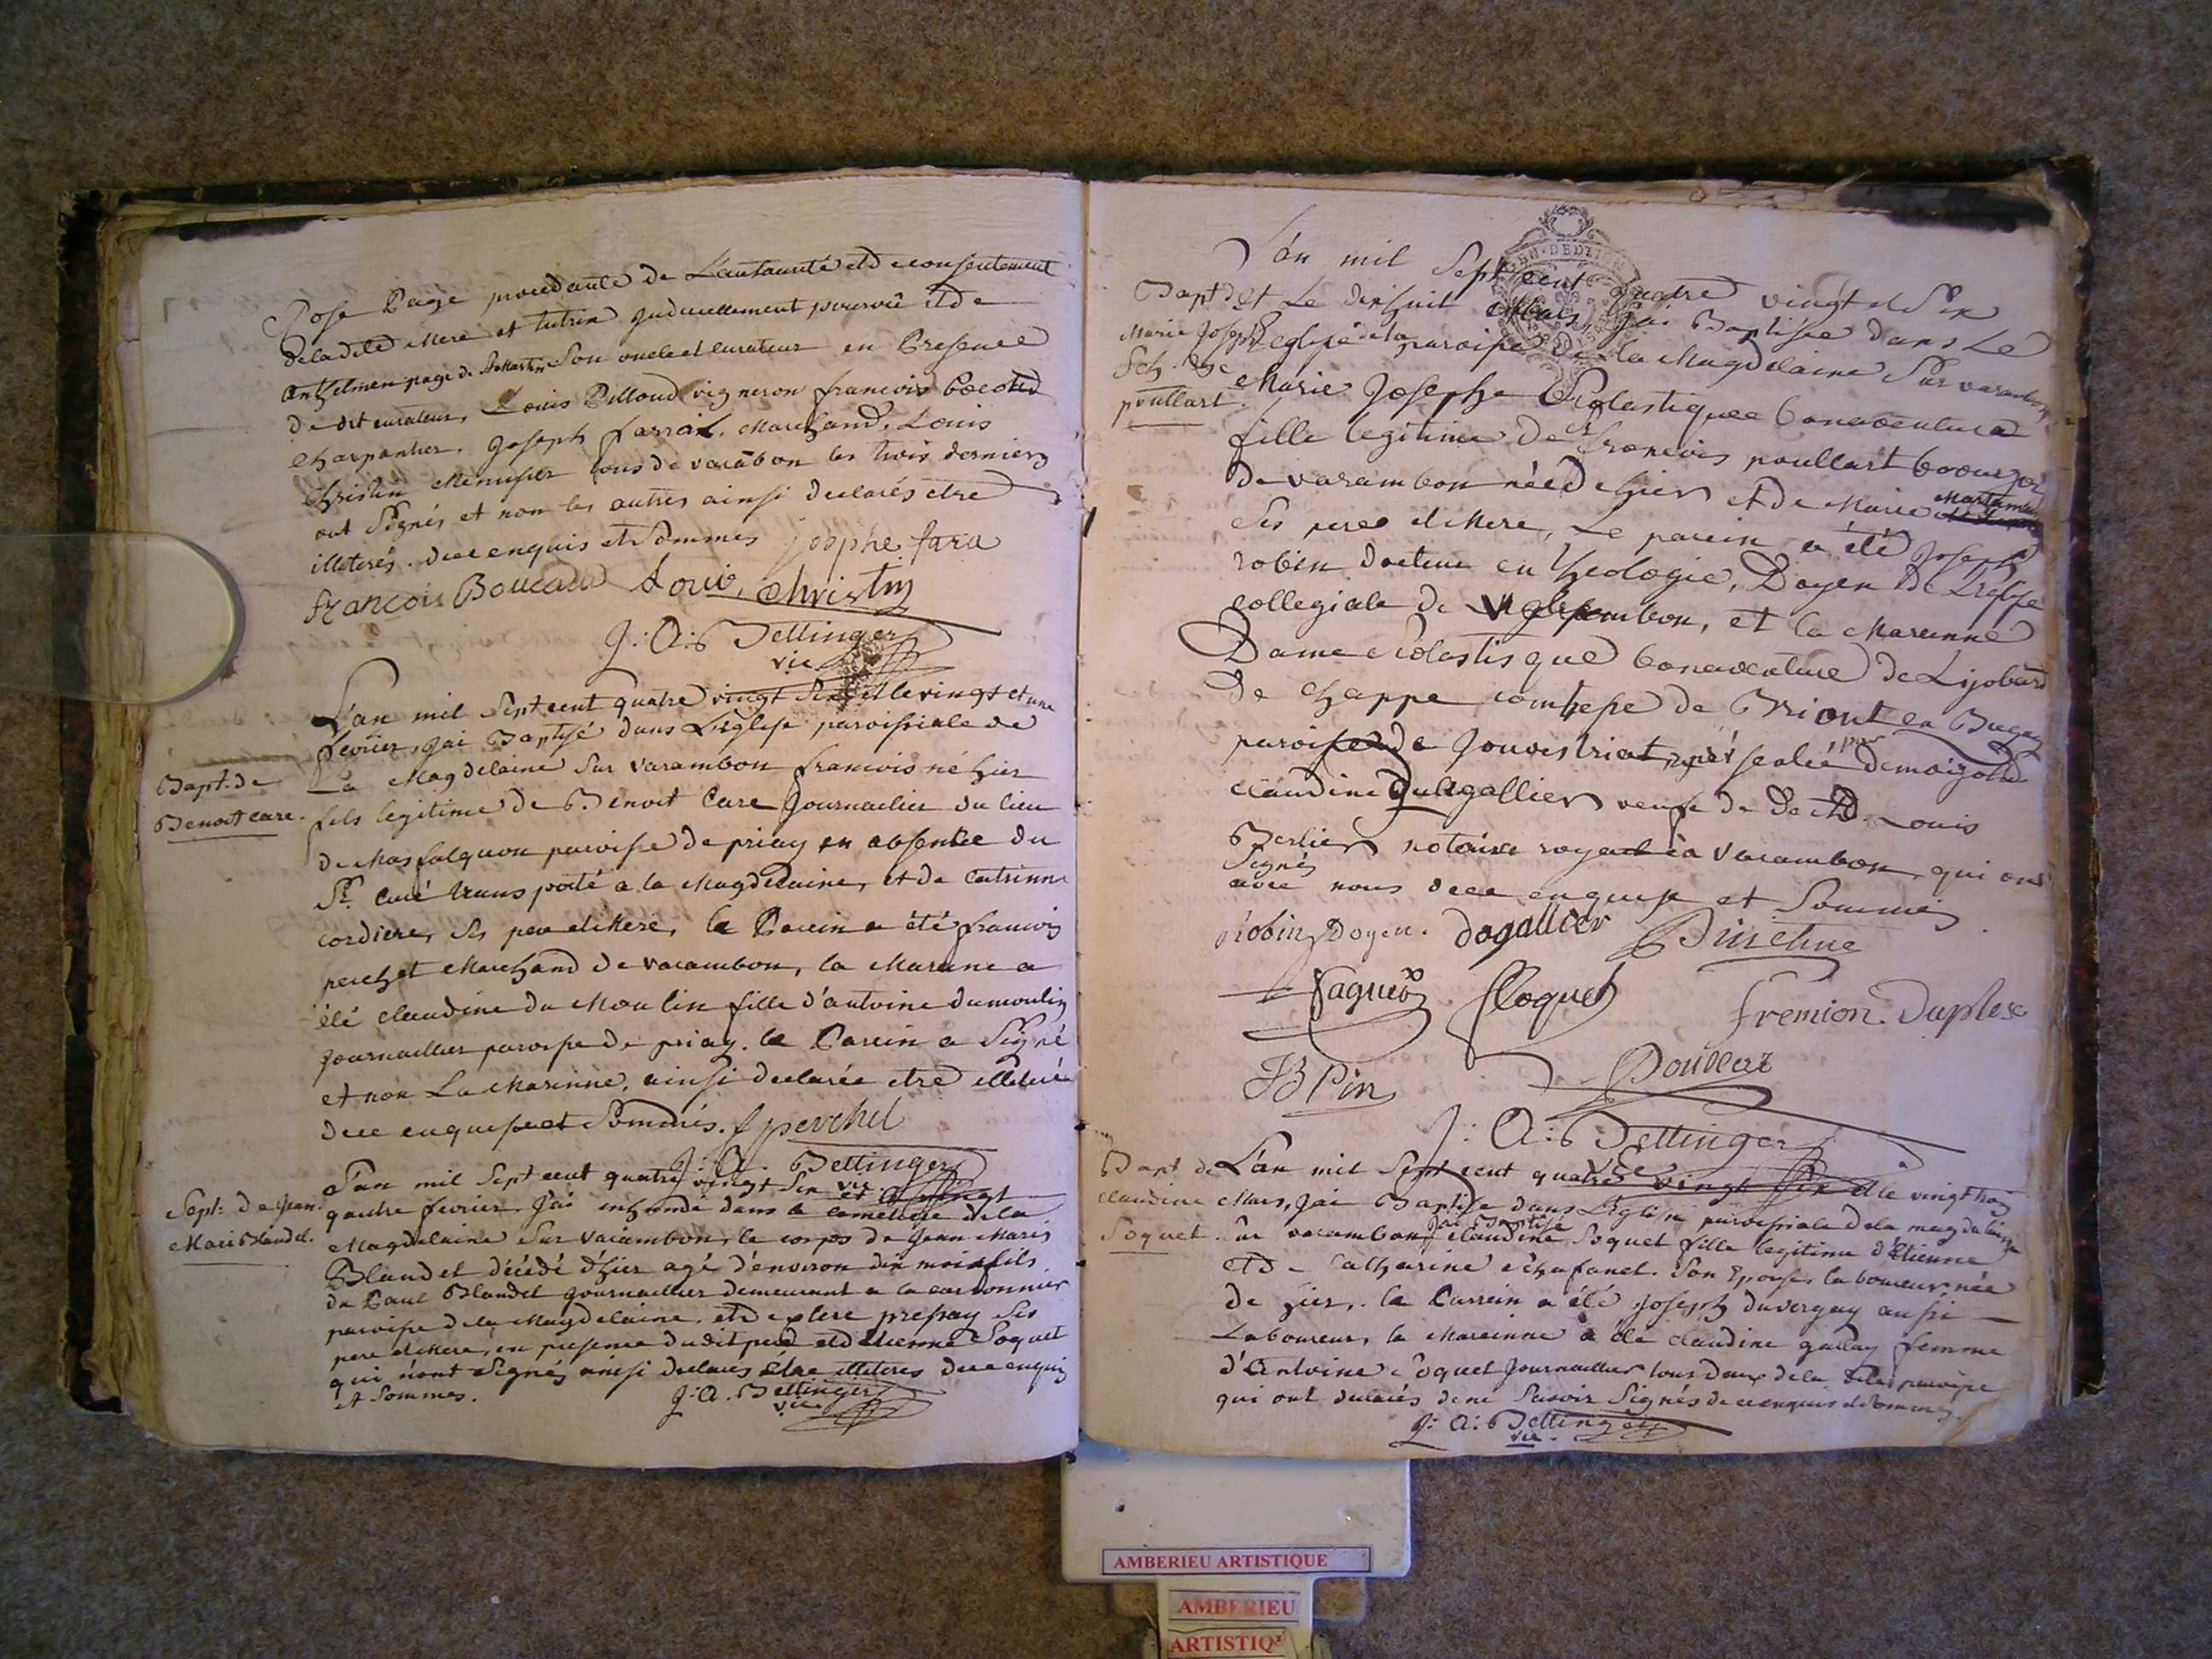 Rose Page procedante de L'autaurité et de consentement
de ladite Mere et tutrix juduciellement pourvuë et de
Anthelmen page de St Martin son oncle et curateur en Presence
de dit curateur, Louis Pilloud vigneron francois Bocoud
charpantier, Joseph farraz, Marchand, Louis
Christin Menusier tous de varābon les trois derniers
ont Signés et non les autres ainsi declarés etre
illeterés. dece enquis et Sommes josphe fara
françois Boucaud Loui, christin
J: A: Bettinger
vic
L'an mil Sept cent quatre vingt Six et le vingt et une
fevrier, jai Baptisé dans L'eglise paroissiale de
Bapt. de
Benoit care.
La Magdelaine Sur varambon francois né hier
fils legitime de Benoit Care Journailier du lieu
de Mas falquon paroisse de priay en absentee du
Sr. Curé transporté a la Magdelaine, et de Catrinne
cordiere, Ses pere et Mere, le Parein a été francois
perchet Marchand de varambon, la Marenne a
été claudine du Moulin fille d'antoine dumoulin
journaillier paroisse de priay. le Parein a Signé
et non La Marinne, ainsi declarée etre illeteré
dece enquise et Sommés. f perchet
J: A: Bettinger
vic
L'an mil Sept cent quatre vingt Six et le vingt
Sept: de Jean
Marie Blandel.
quatre fevrier, J'ai inhumé dans le cemetiere de la
Magdelaine Sur varambon, le corps de Jean Marie
Blandel décédé d'hier agé d'environ dix mois fils
de Paul Blandel journaillier demeurant a la carbonnier
paroisse de la Magdelaine, et de plere pressay Ses
pere et Mere, en presence dudit pere et d'etienne Soquet
qui n'ont Signés ainsi declarés être illeteres dece enquis
et Sommes. J: A: Bettinger
vic
L'an mil Sept cent quatre vingt et Six
Bapt de
Marie Joseph
Sch. Be
poullart.
et Le dixhuit Mars, jai Baptisée dans Le
Eglise de la paroisse de la Magdelaine Sur varambon
Marie Josephe Scolastique bonaventure
fille legitime de Sr francois poullart bourgois
de varambon née d'hier et de Marie Martamet
Ses pere et Mere, Le parein a été Joseph
robin docteur en theologie, Doyen de L'eglise
collegiale de varambon, et la Mareinne
Dame scolastisque bonaventure de Lijobard
de chappe comtesse de Briont en Bugey
paroisse de Jouvestriat, representée par Demoizelle
claudine Dugallier veufe de Sr Louis
Berlier notaire royal à varambon, qui ont
Signés
avec nous dece enquise et Sommés
robin Doyen. dogallier Duchne
Jaquet floquet
fremion Duplese
JB Pin Poullart
J: A: Bettinger
vic
Bapt de
claudine
Soquet.
L'an mil Sept cent quatre vingt Six et le vingt trois
Mars, Jai Baptise dans L'eglise paroissiale de la magdelainne
Sur varambon, Jai Baptisé claudine Soquet fille legitime d'Etienne
et de Catharine échafanel. Son Epouse, laboureur, née
de hier,. le Parrein a été Joseph duvergay aussi
Laboureur, la Mareinne a été claudine gallay femme
d'Antoine Soquet Journaillier tous deux de la dite paroisse
qui ont declarés de ne Savoir Signés dece enquis et Sommés.
J: A: Bettinger
vic.
AMBERIEU ARTISTIQUE
AMBERIEU
ARTISTIQ